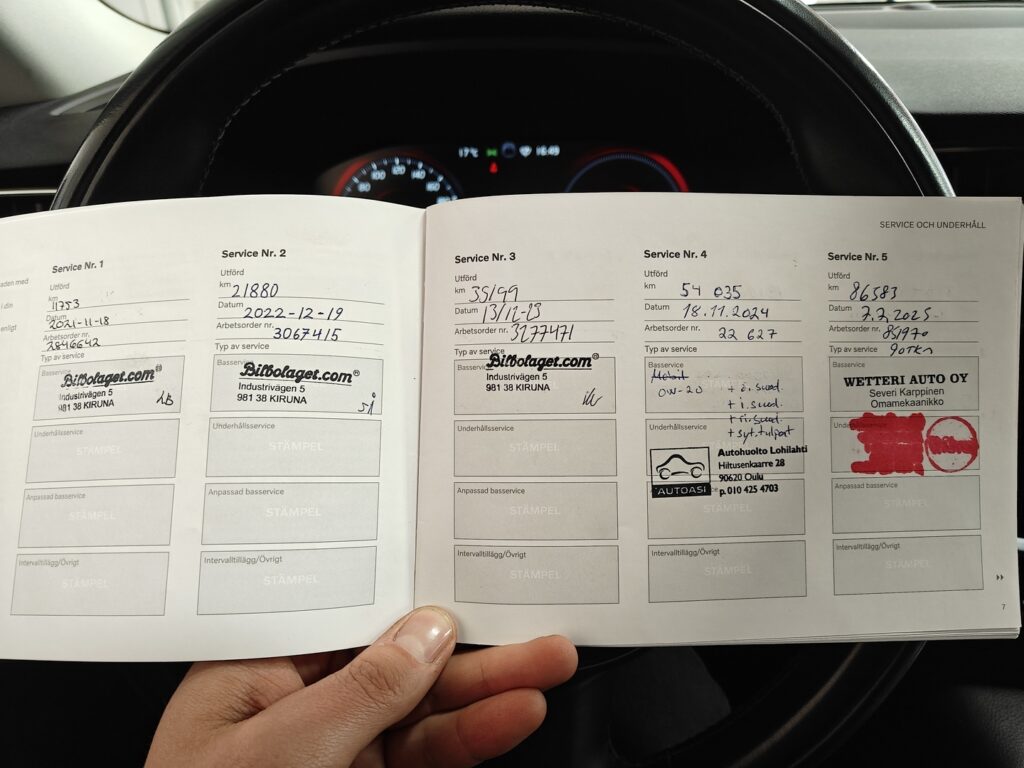 17°C 16:49
80 100 120 140 160
SERVICE OCH UNDERHÅLL
aden med
i din
enligt
Service Nr. 1
Utförd
km 11753
Datum 2021-11-18
Arbetsorder nr. 2846642
Typ av service
Basservice
Bilbolaget.com®
Industrivägen 5
981 38 KIRUNA
Underhållsservice
STÄMPEL
Anpassad basservice
STÄMPEL
Intervalltillägg/Övrigt
STÄMPEL
Service Nr. 2
Utförd
km 21880
Datum 2022-12-19
Arbetsorder nr. 3067415
Typ av service
Basservice
Bilbolaget.com®
Industrivägen 5
981 38 KIRUNA
Underhållsservice
STÄMPEL
Anpassad basservice
STÄMPEL
Intervalltillägg/Övrigt
STÄMPEL
Service Nr. 3
Utförd
km 35199
Datum 13/12-23
Arbetsorder nr. 3277471
Typ av service
Basservice
Bilbolaget.com®
Industrivägen 5
981 38 KIRUNA
Underhållsservice
STÄMPEL
Anpassad basservice
STÄMPEL
Intervalltillägg/Övrigt
STÄMPEL
Service Nr. 4
Utförd
km 54 035
Datum 18.11.2024
Arbetsorder nr. 22 627
Typ av service
Basservice
0W-20 + ö.suod.
+ i.suod.
+ ri.suod.
+ syt.tulpat
Underhållsservice
AUTOASI
Autohuolto Lohilahti
Hiltusenkaarre 28
90620 Oulu
p. 010 425 4703
STÄMPEL
Intervalltillägg/Övrigt
STÄMPEL
Service Nr. 5
Utförd
km 86583
Datum 7.7.2025
Arbetsorder nr. 851970
Typ av service 90tkm
Basservice
WETTERI AUTO OY
Severi Karppinen
Omamekaanikko
Anpassad basservice
STÄMPEL
Intervalltillägg/Övrigt
STÄMPEL
7